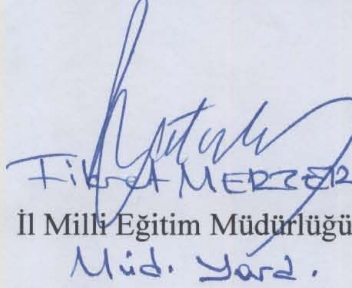 Fikret MERZER
İl Milli Eğitim Müdürlüğü
Müd. Yard.